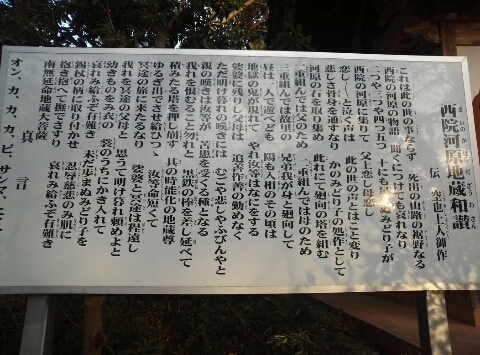 西院河原地蔵和讃
伝 空也上人御作
これは此の世の事ならず 死出の山路の裾野なる
西院の河原の物語 聞くにつけても哀れなり
二つや三つや四つ五つ 十にも足らぬみどり子が
西院の河原に集りて 父上恋し母恋し
恋し恋しと泣く声は 此の世の声とはこと変り
悲しさ骨身を通すなり かのみどり子の処作として
河原の石を取り集め 此れにて廻向の塔を組む
一重組んでは父のため 二重組んでは母のため
三重組んでは故里の 兄弟我が身と廻向して
昼は一人で遊べども 陽も入相のその頃は
地獄の鬼が現れて やれ汝等はなにをする
娑婆に残りし父母は 追善作善の勤めなく
ただ明け暮れの嘆きには むごや悲しやふびんやと
親の嘆きは汝等が 苦患を受くる種となる
我れを恨むること勿れと 黒鉄の棒を差し延べて
積みたる塔を押し崩す 其の時能化の地蔵尊
ゆるぎ出でさせ給ひつゝ 汝等命短くて
冥途の旅に来たるなり 娑婆と冥途は程遠し
我れを冥途の父母と 思うて明け暮れ頼めよと
幼きものをみ衣の 袋のうちにかき入れて
哀れみ給ふぞ有難き 未だ歩まぬみどり子を
錫杖の柄に取り付かせ 忍辱慈悲のみ肌に
抱き抱へて撫でさすり 哀れみ給ふぞ有難き
南無延命地蔵大菩薩
真言
オン、カ、カ、カ、ビ、サンマ、エイ、